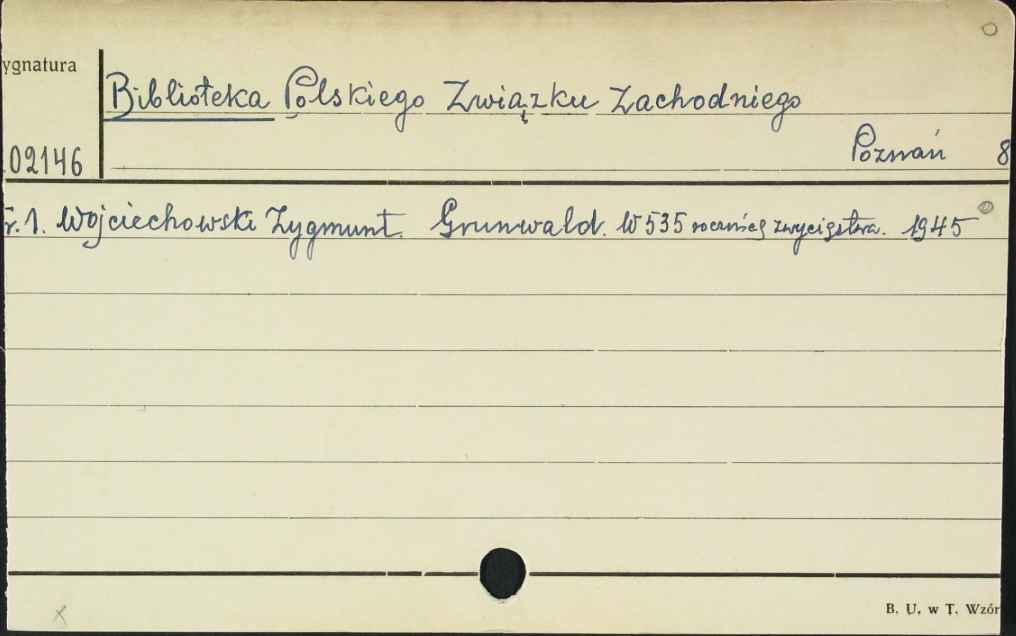 ygnatura
Biblioteka Polskiego Związku Zachodniego
Poznań 8
02146
r. 1. Wojciechowski Zygmunt. Grunwald. W 535 rocznicę zwycięstwa. 1945
B. U. w T. Wzór